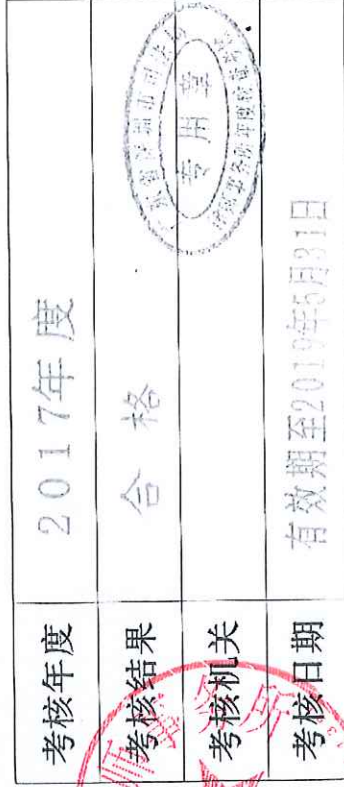 考核年度 2017年度
考核结果 合格
考核机关
专用章
考核日期 有效期至2019年5月31日
师事务所